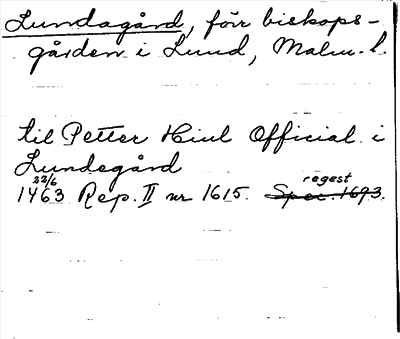 Lundagård, förr biskops-
gården i Lund, Malm. l.
til Petter Hiul Official i
Lundegård
22/6 regest
1463 Rep. II nr 1615. Spec. 1693.